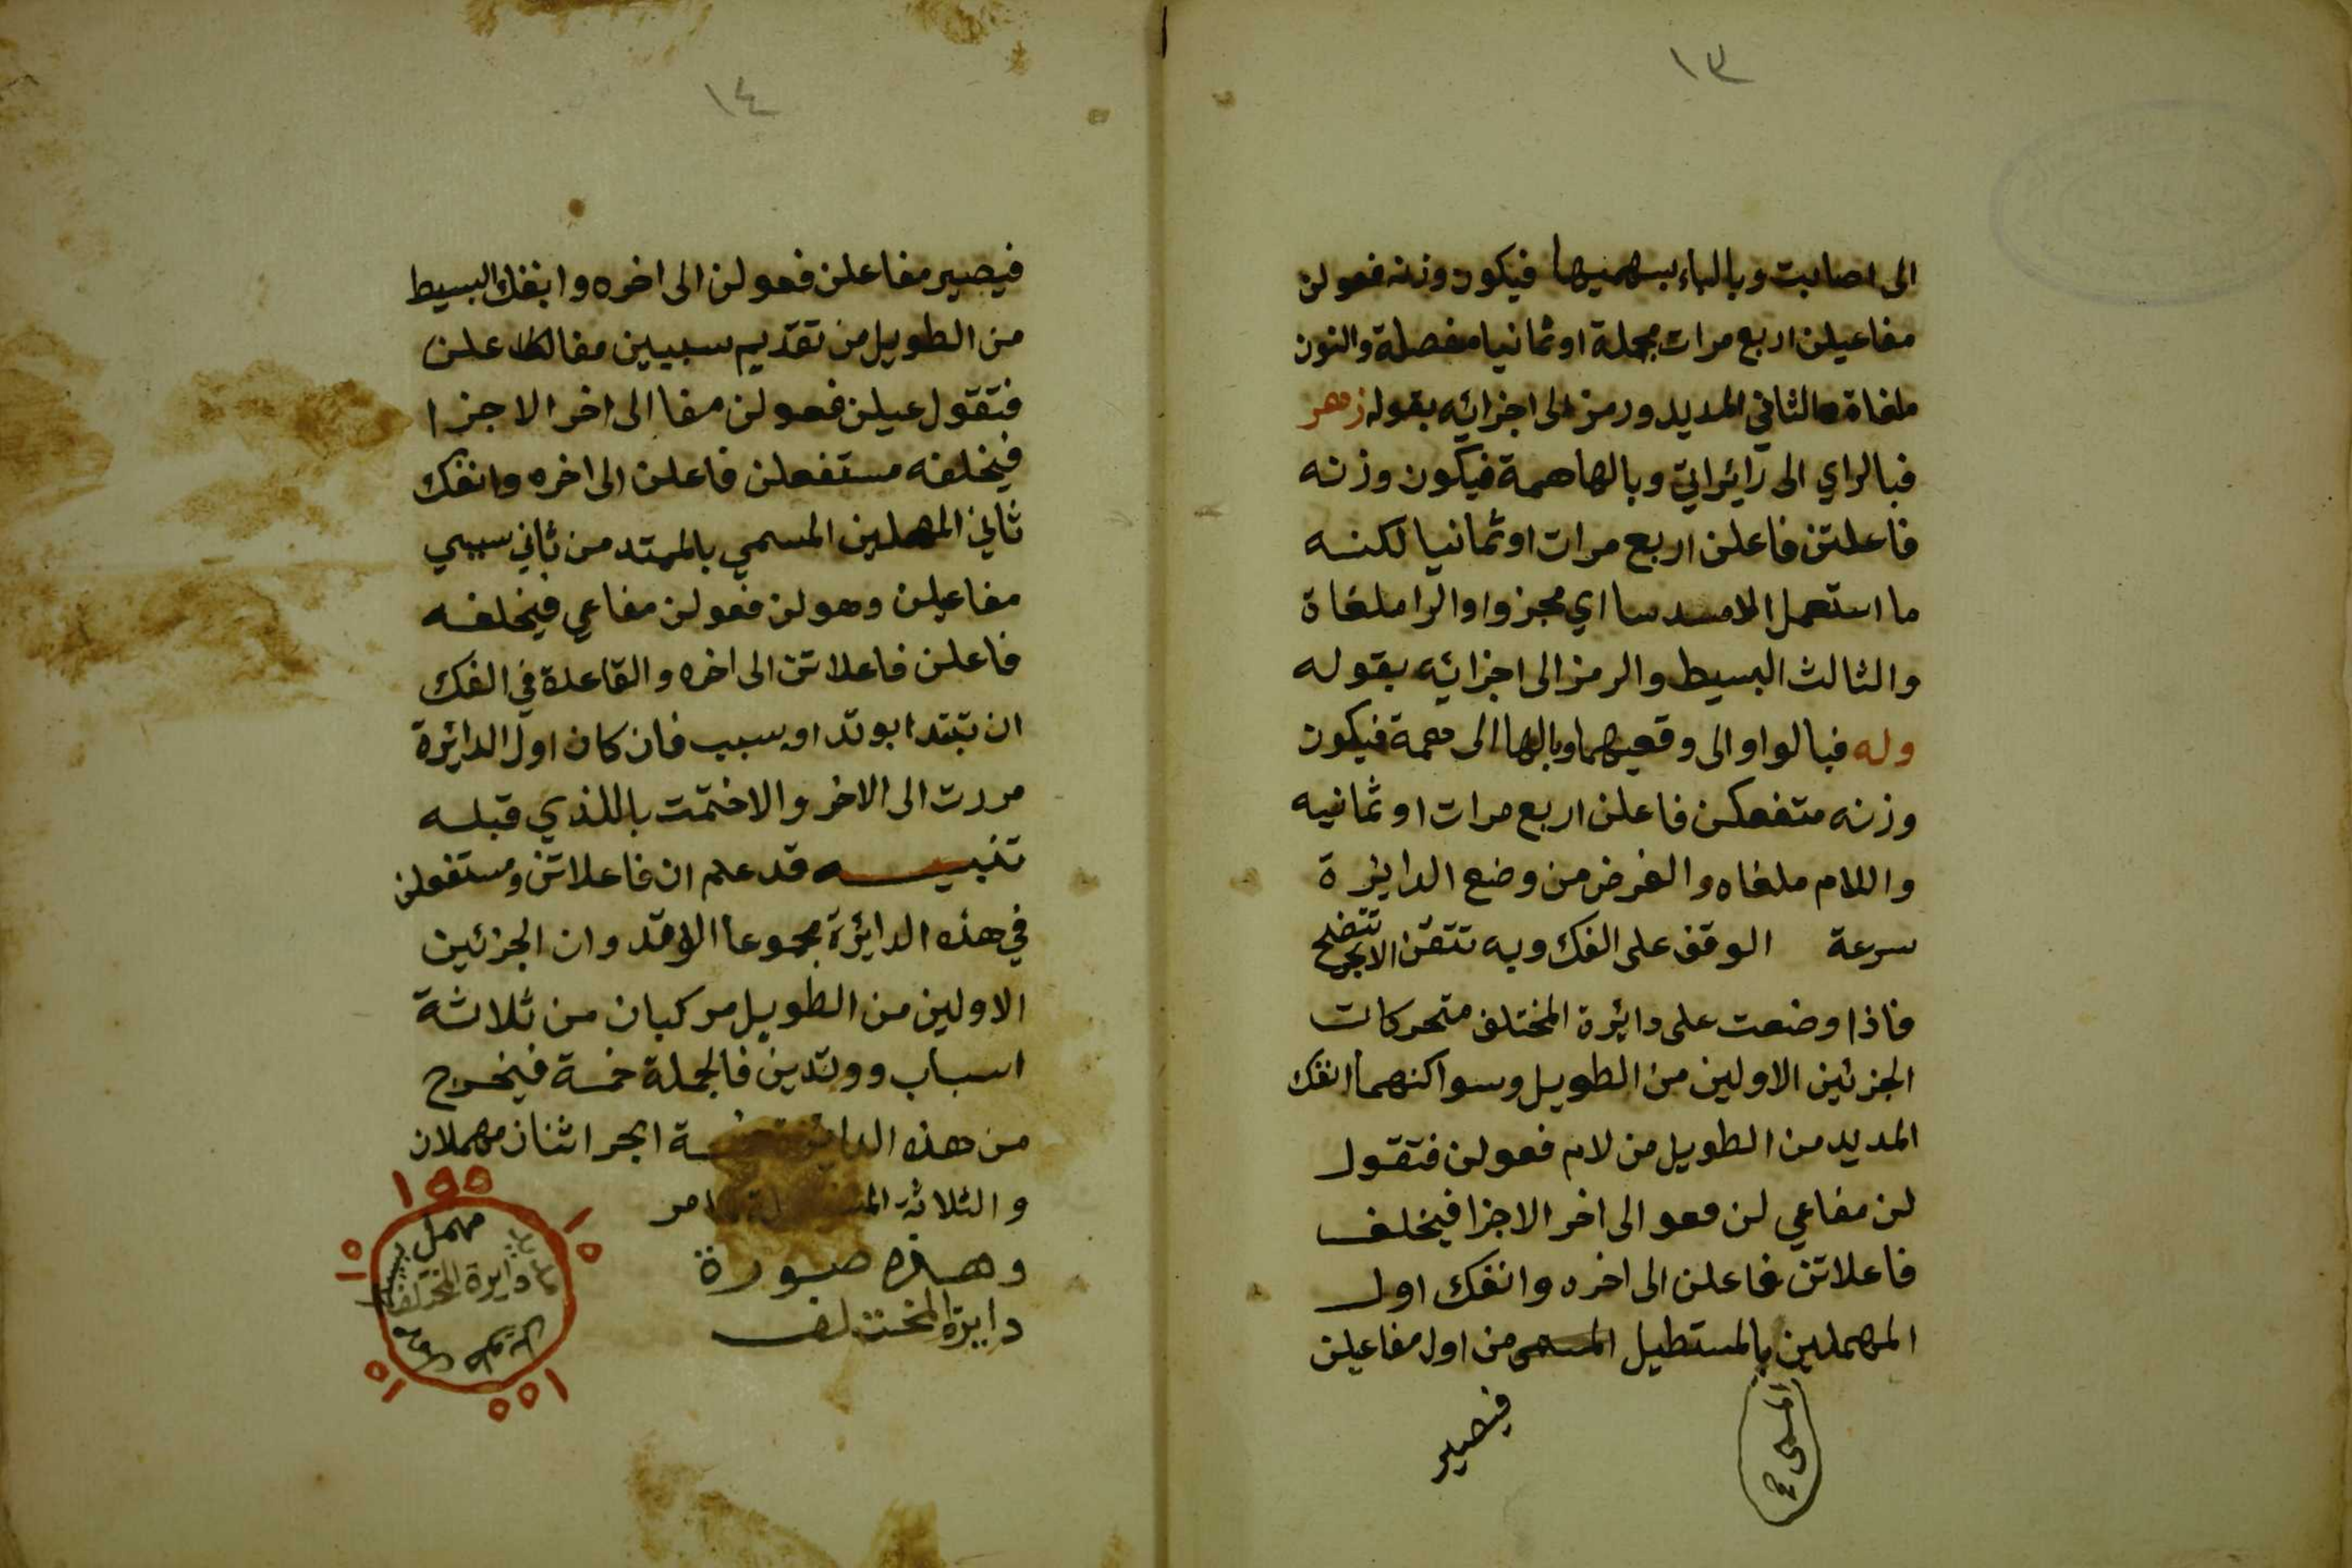 ١٣
الى اصابت وبالباء بسهميها فيكون وزنه فعولن
مفاعيلن اربع مرات مجملة او ثمانيا مفصلة والنون
ملغاة والثاني المديد ورمز الى اجزائه بقوله زهر
فبالزاي الى زائراتي وبالها همة فيكون وزنه
فاعلتن فاعلن اربع مرات او ثمانيا لكنه
ما استعمل الا مسدسا اي مجزوا والرا ملغاة
والثالث البسيط والرمز الى اجزائه بقوله
وله فبالواو الى وقعيهما وبالها الى همة فيكون
وزنه متفعكن فاعلن اربع مرات او ثمانيه
واللام ملغاه والغرض من وضع الدايرة
سرعة الوقف على الفك وبه تتقن الابحر تتضح
فاذا وضعت على دائرة المختلف متحركات
الجزئين الاولين من الطويل وسواكنهما انفك
المديد من الطويل من لام فعولن فتقول
لن مفاعي لن فعو الى اخر الاجزا فيخلف
فاعلاتن فاعلن الى اخره وانفك اول
المهملين بالمستطيل المسمى من اول مفاعيلن
المسمى
فيصير
١٤
فيصير مفاعلن فعولن الى اخره وانفك البسيط
من الطويل من تقديم سببين مفا علن
فتقول عيلن فعولن مفا الى اخر الاجزا
فيخلفه مستفعلن فاعلن الى اخره وانفك
ثاني المهملين المسمي بالممتد من ثاني سببي
مفاعيلن وهو لن فعولن مفاعي فيخلفه
فاعلن فاعلاتن الى اخره والقاعدة في الفك
ان تبتدا بوتد او سبب فان كان اول الدائرة
مررت الى الاخر والا ختمت باللذي قبله
تنبيه قد علم ان فاعلاتن ومستفعلن
في هذه الدائرة مجموعا الاوتد وان الجزئين
الاولين من الطويل مركبان من ثلاثة
اسباب ووتدين فالجملة خمسة فيخرج
من هذه الدائرة خمسة ابحر اثنان مهملان
والثلاثة مر
وهذه صورة
دايرة المختلف
١٥٥
١٥
١٥
١٥
١٥٥
مهمل
دايرة المختلف